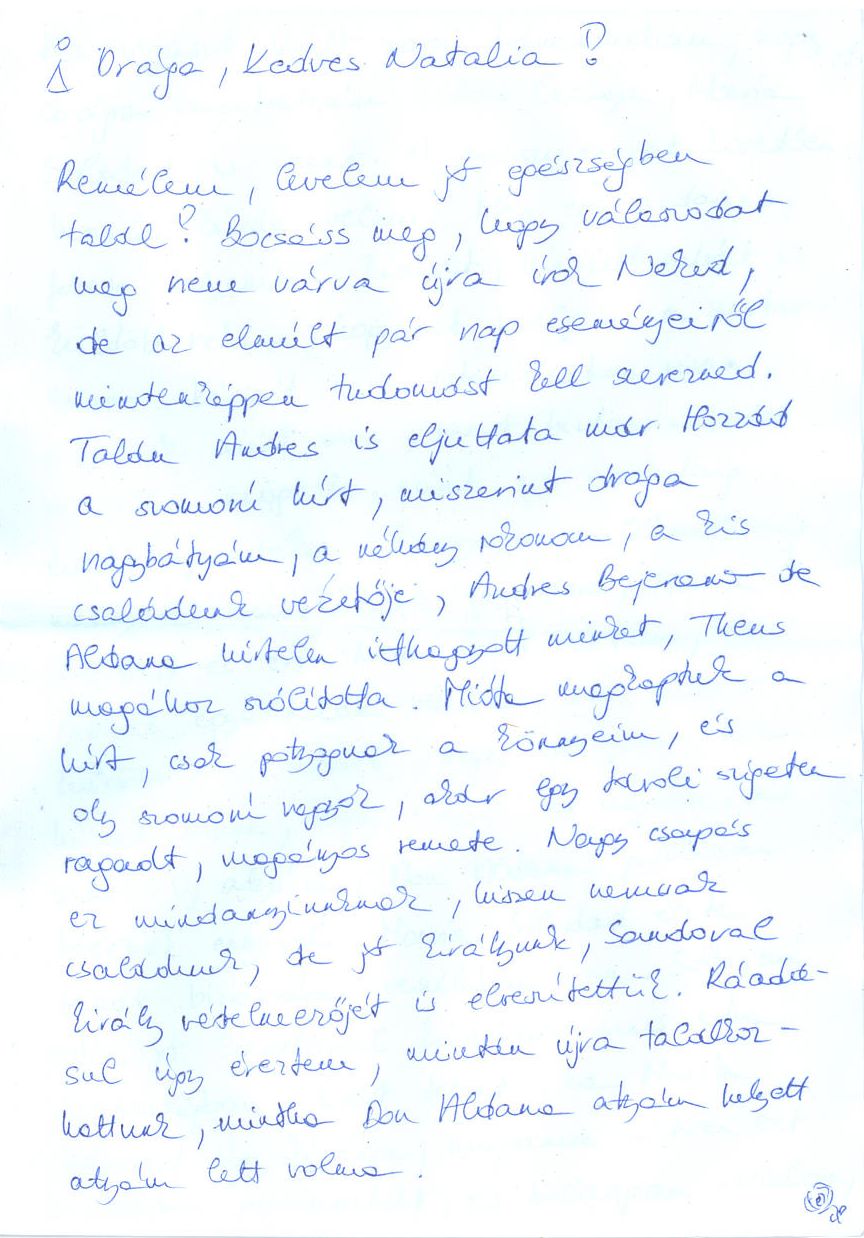 Drága, Kedves Natalia!
Remélem, levelem jó egészségben
talál! Bocsáss meg, hogy válaszodat
meg nem várva újra írok Neked,
de az elmúlt pár nap eseményeiről
mindenképpen tudomást kell szerezned.
Talán Andres is eljuttata már Hozzád
a szomorú hírt, miszerint drága
nagybátyám, a néhány rokonom, a kis
családunk vezetője, Andres Bejerano de
Aldana hirtelen itthagyott minket, Theus
magához szólította. Mióta megkaptuk a
hírt, csak potyognak a könnyeim, és
oly szomorú vagyok, akár egy távoli szigeten
ragadt, magányos remete. Nagy csapás
ez mindannyiunknak, hiszen nemcsak
családunk, de jó királyunk, Sandoval
király védelmezőjét is elveszítettük. Ráadá-
sul úgy éreztem, miután újra találkoz-
hattunk, mintha Don Aldana atyám helyett
atyám lett volna.